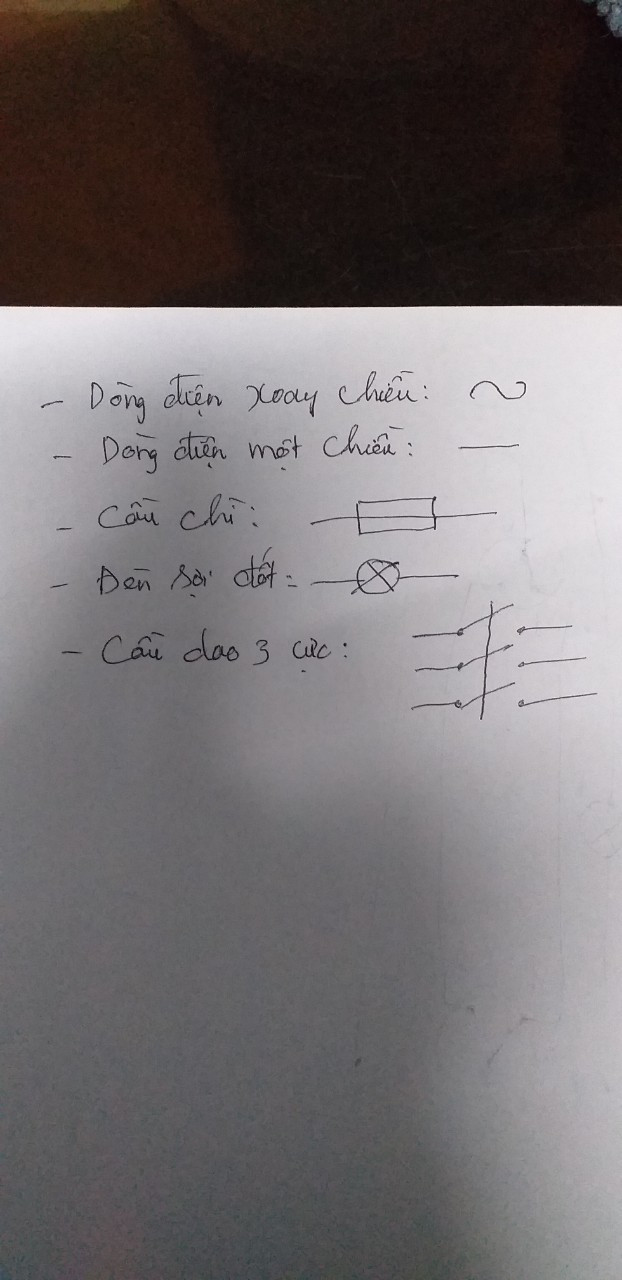 - Dòng điện xoay chiều:
- Dòng điện một chiều:
- Cầu chì:
- Đèn sợi đốt:
- Cầu dao 3 cực: